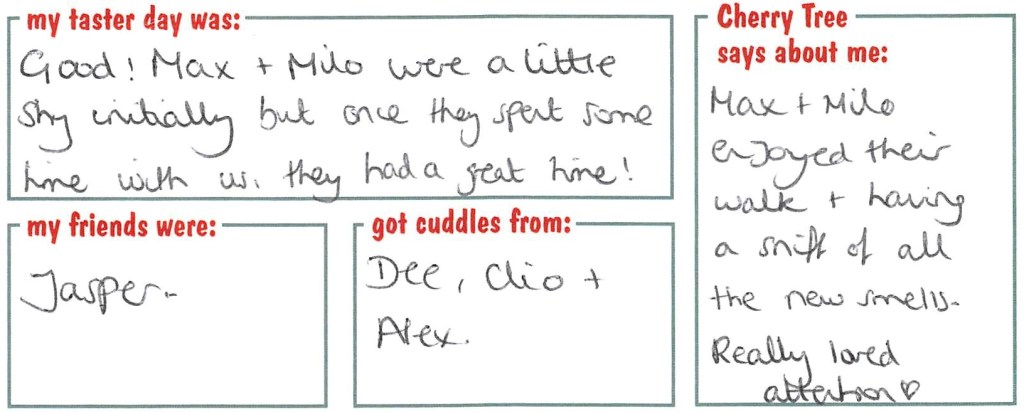 my taster day was:
Good! Max + Milo were a little
shy initially but once they spent some
time with us, they had a great time!
my friends were:
Jasper.
got cuddles from:
Dee, Clio +
Alex.
Cherry Tree
says about me:
Max + Milo
enjoyed their
walk + having
a sniff of all
the new smells.
Really loved
attention ♡